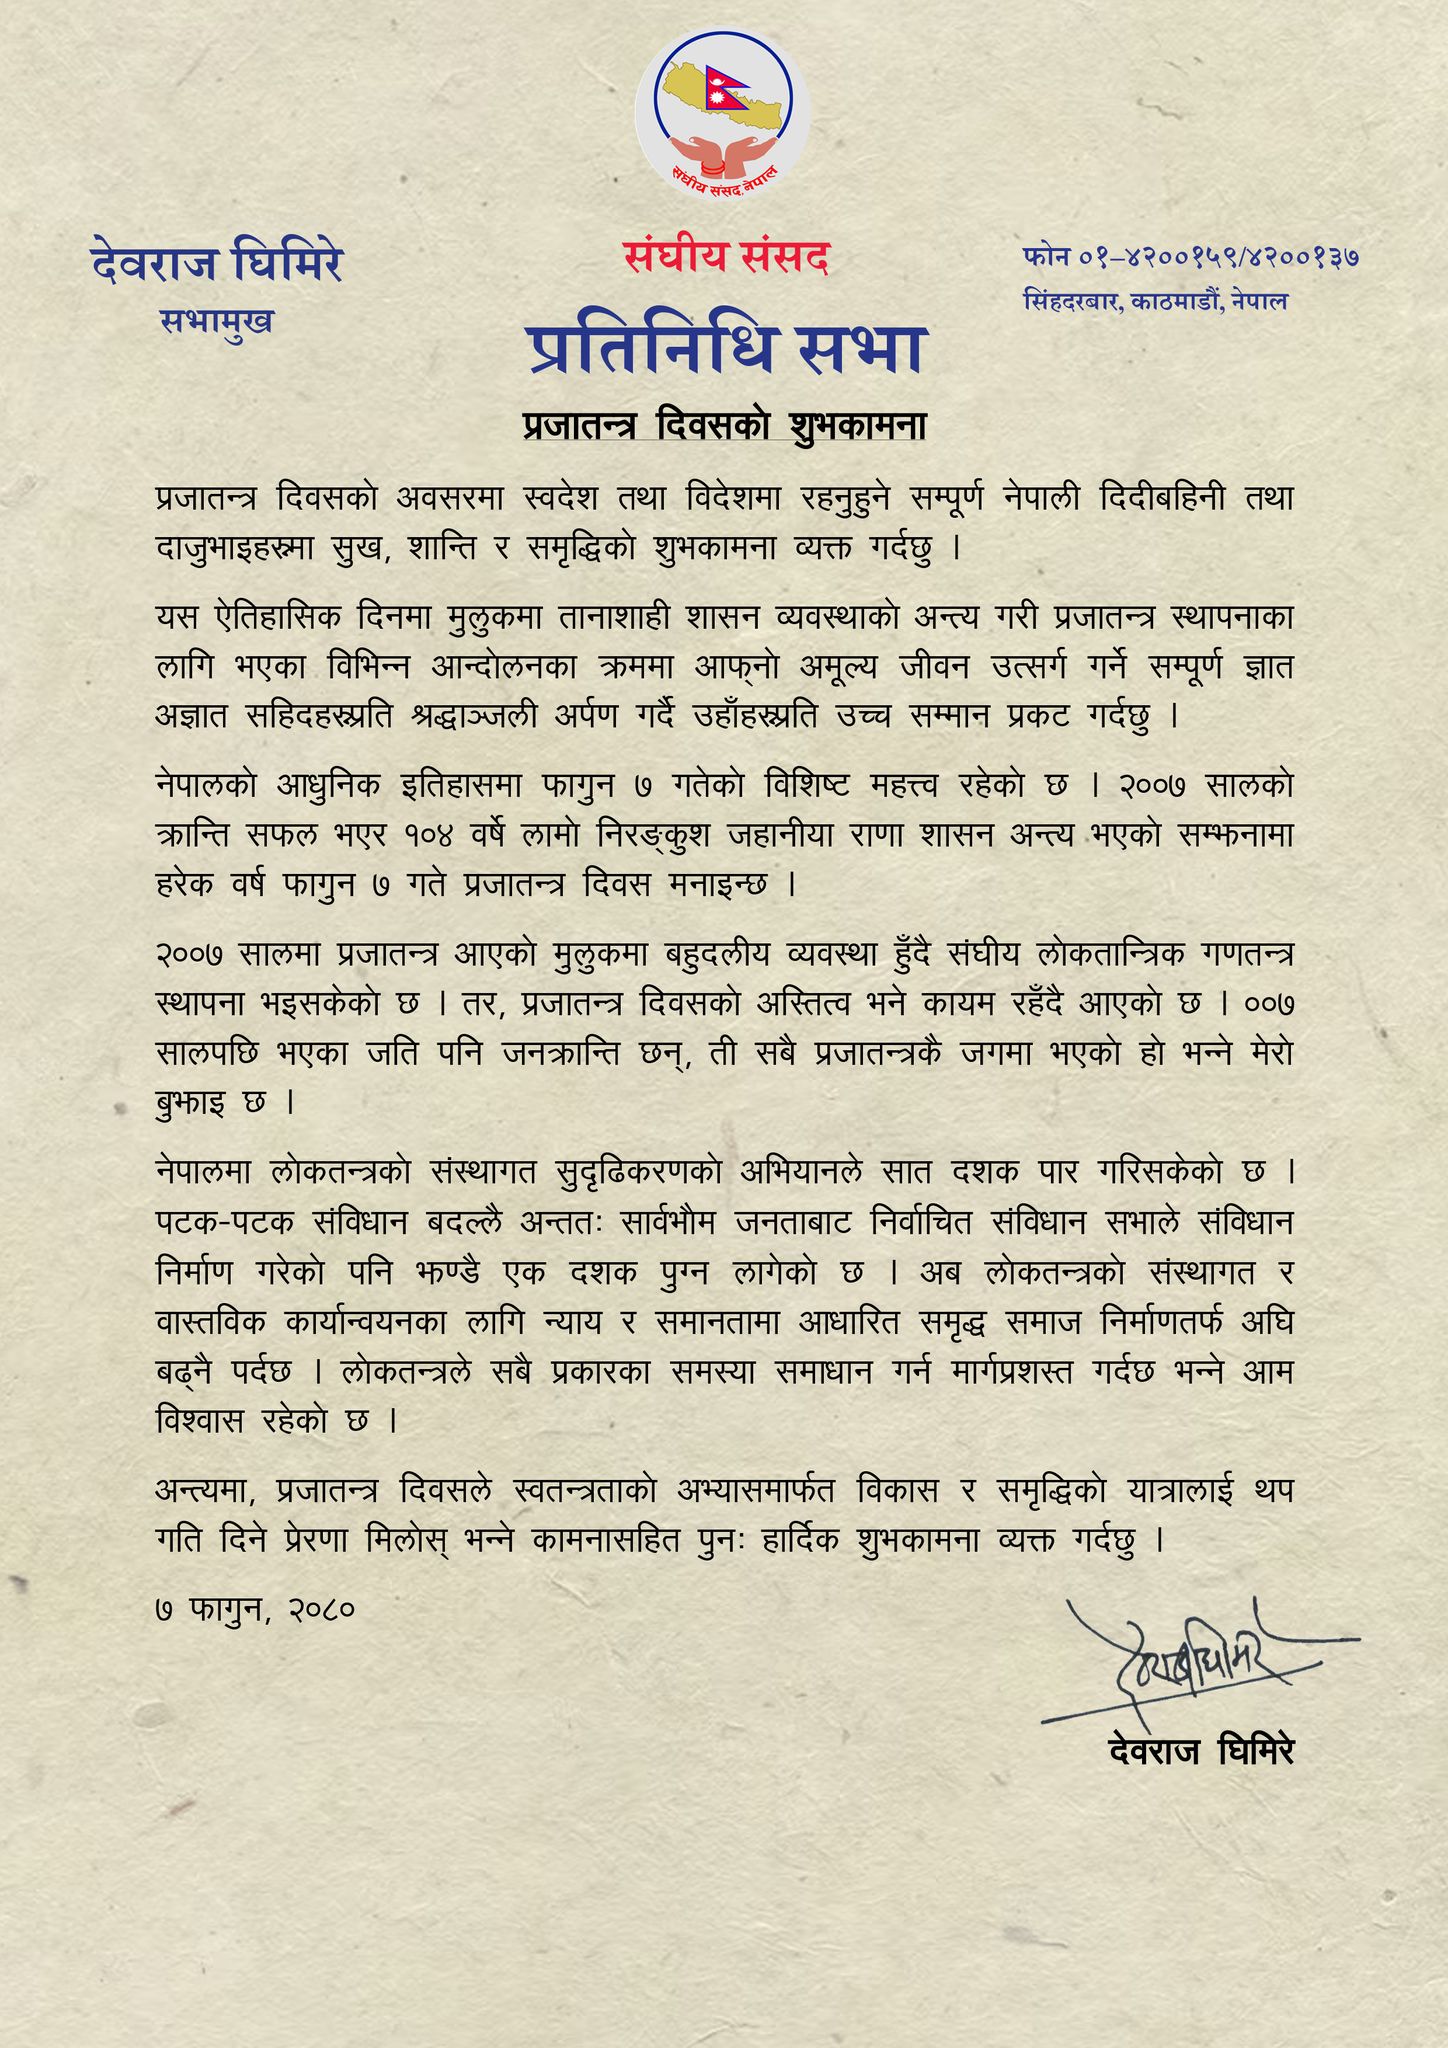 संघीय संसद, नेपाल
देवराज घिमिरे
सभामुख
संघीय संसद
प्रतिनिधि सभा
फोन ०१–४२००१५९/४२००१३७
सिंहदरबार, काठमाडौं, नेपाल
प्रजातन्त्र दिवसको शुभकामना
प्रजातन्त्र दिवसको अवसरमा स्वदेश तथा विदेशमा रहनुहुने सम्पूर्ण नेपाली दिदीबहिनी तथा
दाजुभाइहरुमा सुख, शान्ति र समृद्धिको शुभकामना व्यक्त गर्दछु ।
यस ऐतिहासिक दिनमा मुलुकमा तानाशाही शासन व्यवस्थाको अन्त्य गरी प्रजातन्त्र स्थापनाका
लागि भएका विभिन्न आन्दोलनका क्रममा आफ्‌नो अमूल्य जीवन उत्सर्ग गर्ने सम्पूर्ण ज्ञात
अज्ञात सहिदहरुप्रति श्रद्धाञ्जली अर्पण गर्दै उहाँहरुप्रति उच्च सम्मान प्रकट गर्दछु ।
नेपालको आधुनिक इतिहासमा फागुन ७ गतेको विशिष्ट महत्त्व रहेको छ । २००७ सालको
क्रान्ति सफल भएर १०४ वर्षे लामो निरङ्कुश जहानीया राणा शासन अन्त्य भएको सम्झनामा
हरेक वर्ष फागुन ७ गते प्रजातन्त्र दिवस मनाइन्छ ।
२००७ सालमा प्रजातन्त्र आएको मुलुकमा बहुदलीय व्यवस्था हुँदै संघीय लोकतान्त्रिक गणतन्त्र
स्थापना भइसकेको छ । तर, प्रजातन्त्र दिवसको अस्तित्व भने कायम रहँदै आएको छ । ००७
सालपछि भएका जति पनि जनक्रान्ति छन्, ती सबै प्रजातन्त्रकै जगमा भएको हो भन्ने मेरो
बुझाइ छ ।
नेपालमा लोकतन्त्रको संस्थागत सुदृढिकरणको अभियानले सात दशक पार गरिसकेको छ ।
पटक-पटक संविधान बदल्लै अन्ततः सार्वभौम जनताबाट निर्वाचित संविधान सभाले संविधान
निर्माण गरेको पनि झण्डै एक दशक पुग्न लागेको छ । अब लोकतन्त्रको संस्थागत र
वास्तविक कार्यान्वयनका लागि न्याय र समानतामा आधारित समृद्ध समाज निर्माणतर्फ अघि
बढ्‌नै पर्दछ । लोकतन्त्रले सबै प्रकारका समस्या समाधान गर्न मार्गप्रशस्त गर्दछ भन्ने आम
विश्वास रहेको छ ।
अन्त्यमा, प्रजातन्त्र दिवसले स्वतन्त्रताको अभ्यासमार्फत विकास र समृद्धिको यात्रालाई थप
गति दिने प्रेरणा मिलोस् भन्ने कामनासहित पुनः हार्दिक शुभकामना व्यक्त गर्दछु ।
७ फागुन, २०८०
देवराज घिमिरे
देवराज घिमिरे